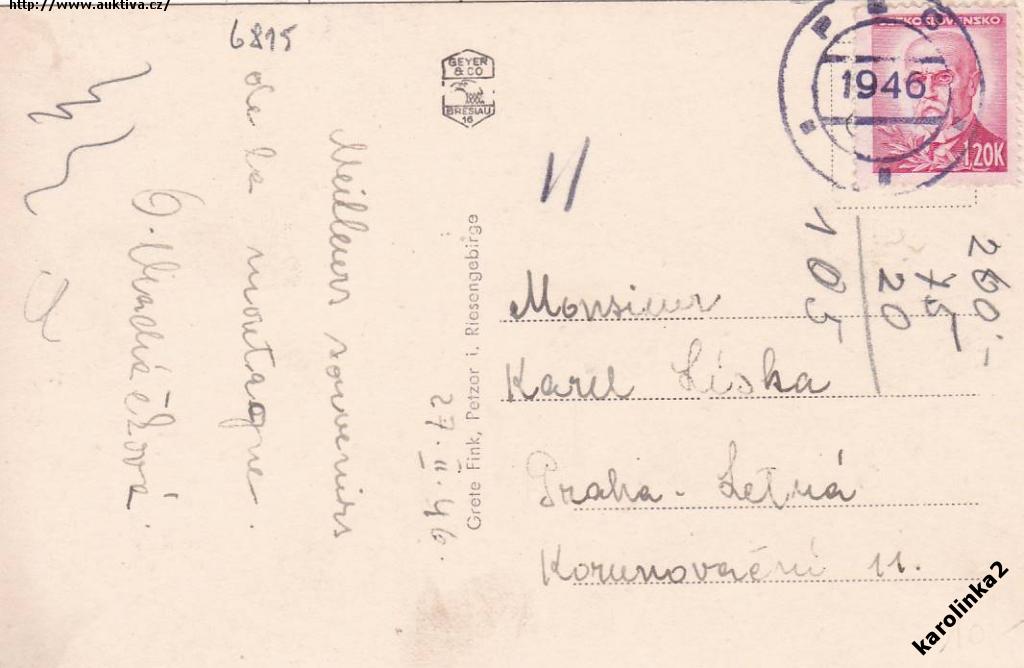 http://www.auktiva.cz/
6815
27. II. 46.
Meilleurs souvenirs
de la montagne.
GEYER
& CO
BRESLAU
16
Grete Fink, Petzor i. Riesengebirge
PEC
1946
ČESKOSLOVENSKO
1,20K
260'-
75
20
105
Monsieur
Karel Liška
Praha - Letná
Korunovační 11.
karolinka2